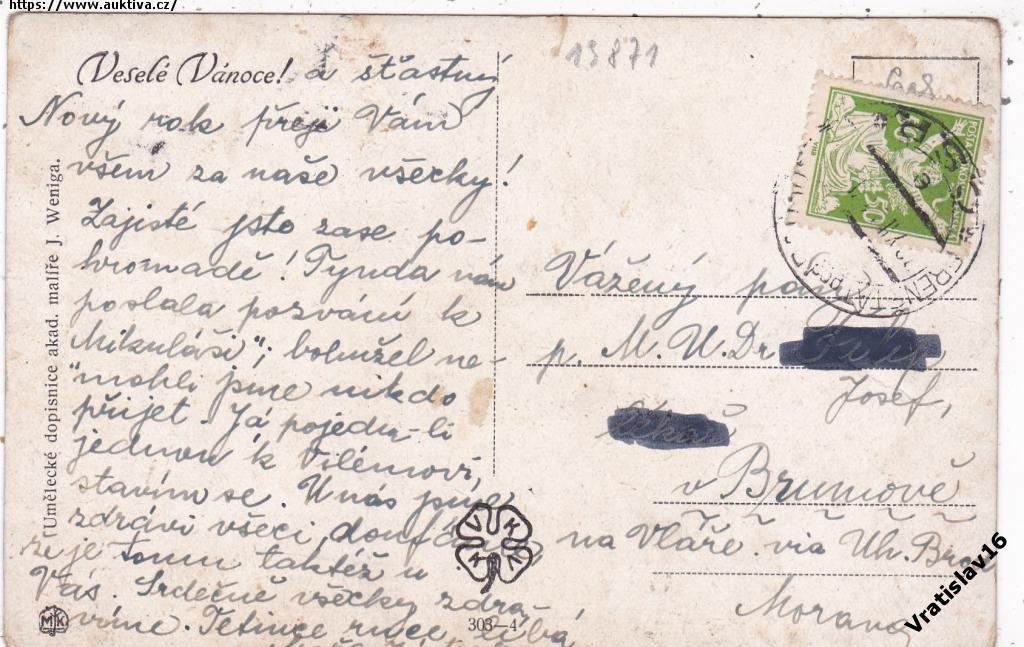 https://www.auktiva.cz/
13871
Veselé Vánoce! a šťastný
Nový rok přeji Vám
všem za naše všecky!
Zajisté jste zase po-
hromadě! Tynda vám
poslala pozvání k
"Mikuláši"; bohužel ne-
mohli jsme nikdo
přijet. Já pojedu-li
jednou k Vilémovi,
stavím se. U nás jsme
zdrávi všeci, doufám
že je tomu taktéž u
Vás. Srdečně všecky zdra-
víme. Tetince ruce líbá
Umělecké dopisnice akad. malíře J. Weniga.
MK
303—4
VKVK
50
Vážený pan
p. M. U. Dr
Josef,
v Brumově
na Vláře via Uh. Bro
Morava
Vratislav16